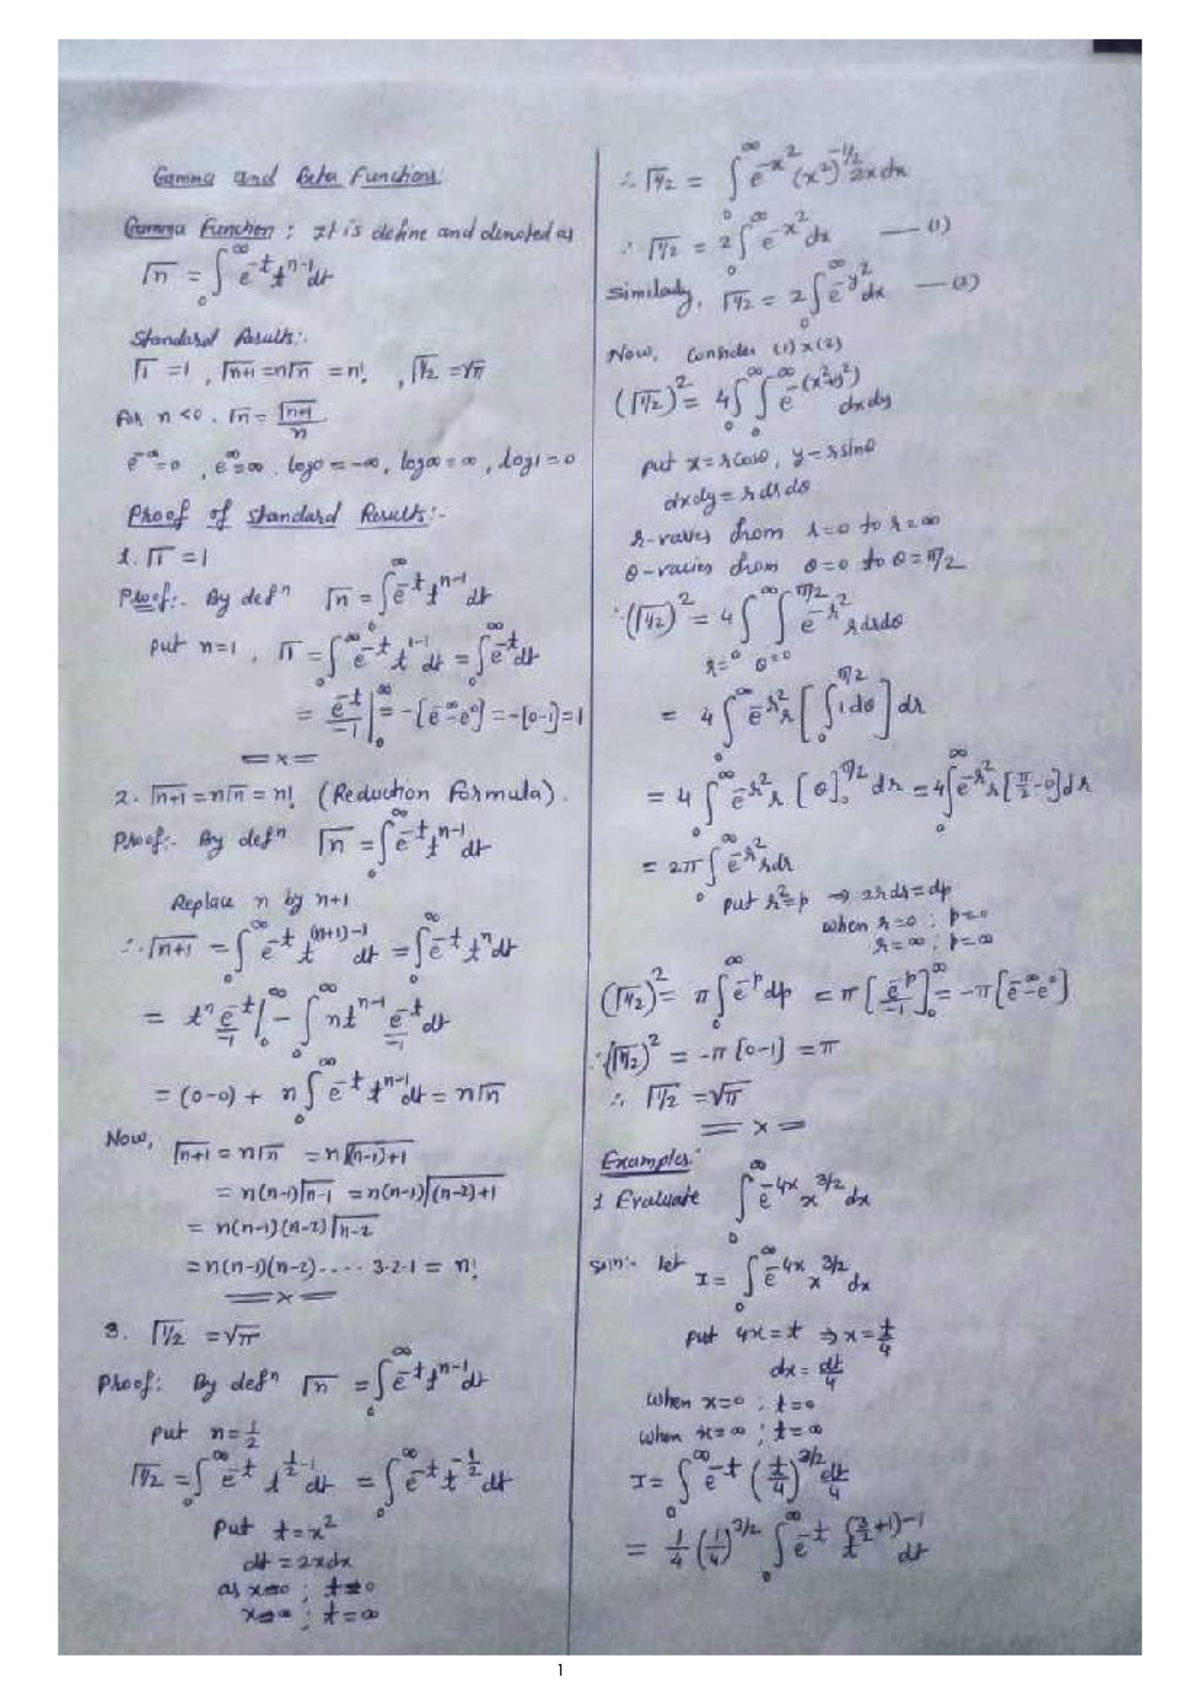 Gamma and Beta Functions:
Gamma Function : It is define and denoted as
√n = ∫₀^∞ e^-t t^n-1 dt
Standard Results:.
√1 = 1 , √n+1 = n√n = n! , √1/2 = √π
For n<0 . √n = √n+1 / n
e^-∞ = 0 , e^∞ = ∞ . log0 = -∞, log∞ = ∞ , log1 = 0
Proof of standard Results:-
1. √1 = 1
Proof:- By defⁿ √n = ∫₀^∞ e^-t t^n-1 dt
put n=1 , √1 = ∫₀^∞ e^-t t^1-1 dt = ∫₀^∞ e^-t dt
= e^-t/-1 |₀^∞ = -[e^-∞ - e^0] = -[0-1] = 1
=x=
2. √n+1 = n√n = n! (Reduction Formula).
Proof:- By defⁿ √n = ∫₀^∞ e^-t t^n-1 dt
Replace n by n+1
∴ √n+1 = ∫₀^∞ e^-t t^(n+1)-1 dt = ∫₀^∞ e^-t t^n dt
= t^n e^-t/-1 |₀^∞ - ∫₀^∞ n t^n-1 e^-t/-1 dt
= (0-0) + n ∫₀^∞ e^-t t^n-1 dt = n√n
Now, √n+1 = n√n = n√(n-1)+1
= n(n-1)√n-1 = n(n-1)√(n-2)+1
= n(n-1)(n-2)√n-2
= n(n-1)(n-2).... 3·2·1 = n!
=x=
3. √1/2 = √π
Proof: By defⁿ √n = ∫₀^∞ e^-t t^n-1 dt
put n = 1/2
√1/2 = ∫₀^∞ e^-t t^1/2-1 dt = ∫₀^∞ e^-t t^-1/2 dt
Put t = x²
dt = 2xdx
as x=0 ; t=0
x=∞ ; t=∞
∴ √1/2 = ∫₀^∞ e^-x² (x²)^-1/2 2x dx
∴ √1/2 = 2∫₀^∞ e^-x² dx — (1)
Similarly, √1/2 = 2∫₀^∞ e^-y² dx — (2)
Now, Consider (1) x (2)
(√1/2)² = 4∫₀^∞ ∫₀^∞ e^-(x²+y²) dx dy
put x = r cosθ, y = r sinθ
dxdy = r dr dθ
r-varies from r=0 to r=∞
θ-varies from θ=0 to θ=π/2
∴ (√1/2)² = 4∫_r=0^∞ ∫_θ=0^π/2 e^-r² r dr dθ
= 4∫₀^∞ e^-r² r [∫₀^π/2 1 dθ] dr
= 4∫₀^∞ e^-r² r [θ]₀^π/2 dr = 4∫₀^∞ e^-r² r [π/2 - 0] dr
= 2π ∫₀^∞ e^-r² r dr
put r² = p ⇒ 2r dr = dp
when r=0 ; p=0
r=∞ ; p=∞
(√1/2)² = π∫₀^∞ e^-p dp = π [e^-p/-1]₀^∞ = -π[e^-∞ - e^0]
∴ (√1/2)² = -π [0-1] = π
∴ √1/2 = √π
=x=
Examples:
1 Evaluate ∫₀^∞ e^-4x x^3/2 dx
Soln:- Let I = ∫₀^∞ e^-4x x^3/2 dx
put 4x = t ⇒ x = t/4
dx = dt/4
When x=0 ; t=0
when x=∞ ; t=∞
I = ∫₀^∞ e^-t (t/4)^3/2 dt/4
= 1/4 (1/4)^3/2 ∫₀^∞ e^-t t^(3/2+1)-1 dt
1